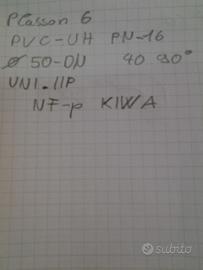 Plasson 6
PVC-UH PN-16
Ø 50-DN 40 90°
UNI.IIP
NF-p KIWA
subito